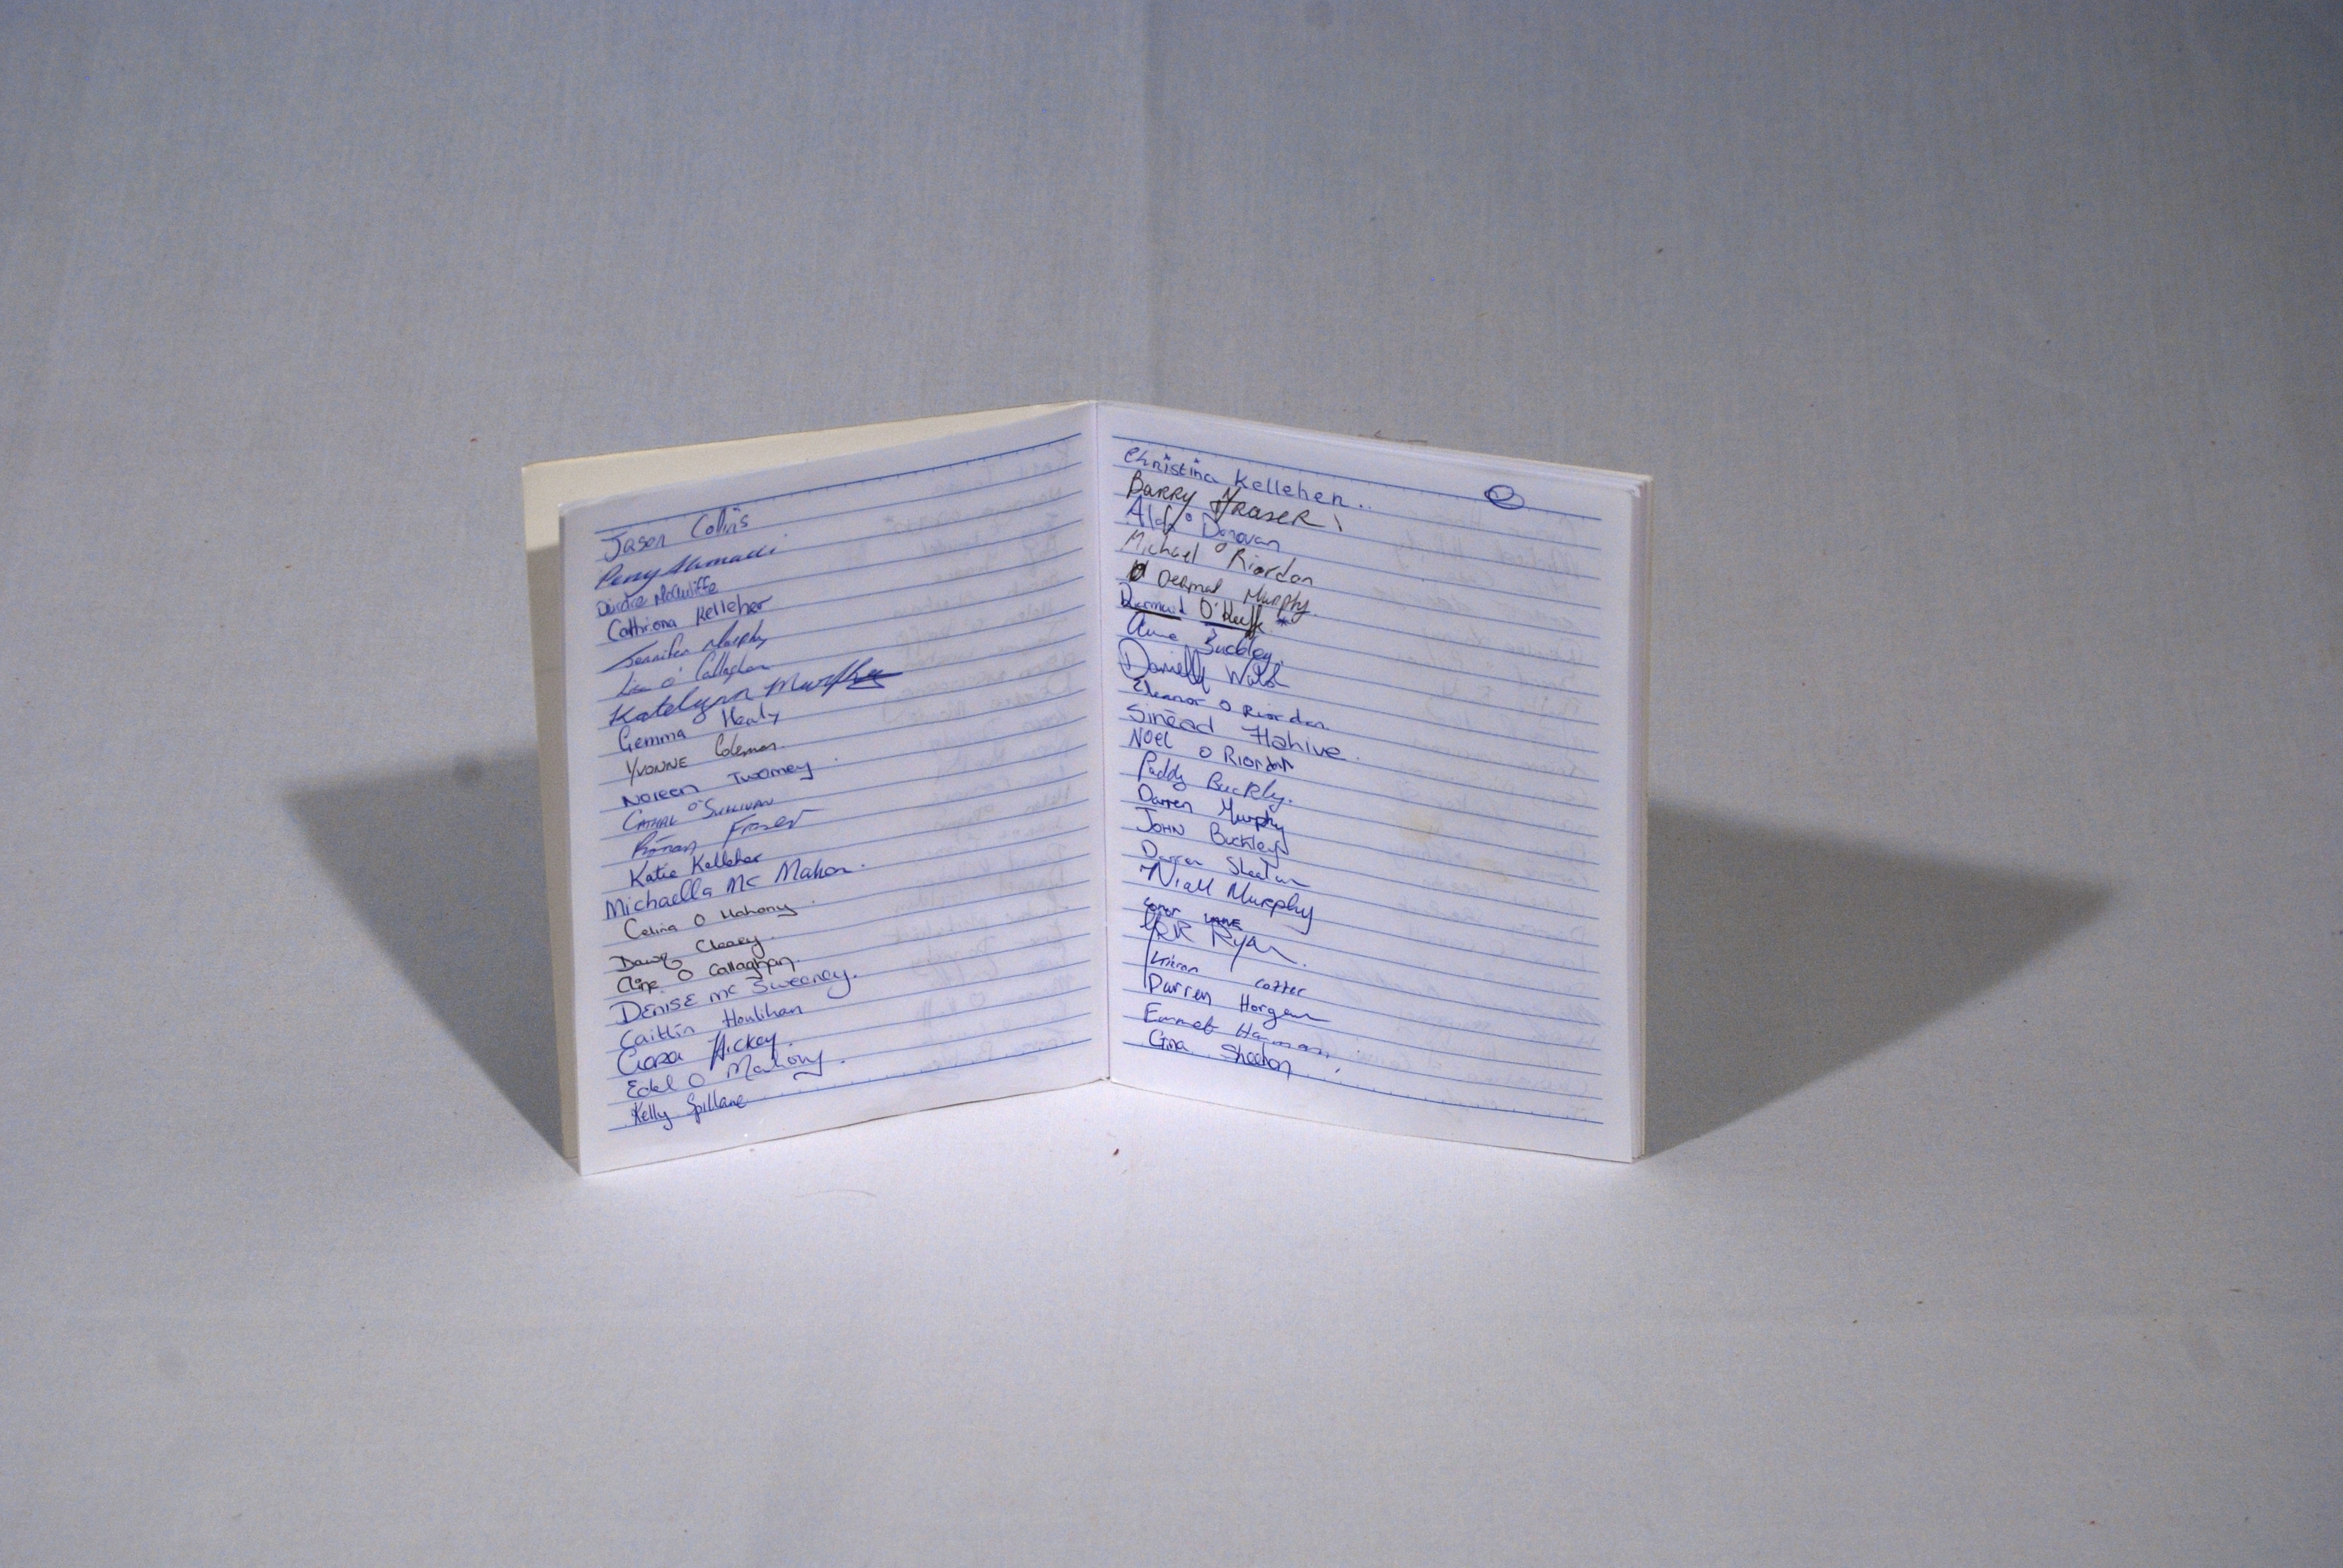 Jason Collins
Perry
Deirdre McAuliffe
Cathriona Kelleher
Jennifer Murphy
Lisa O' Callaghan
Katelynn Murphy
Gemma Healy
Yvonne Coleman.
Noreen Twomey.
Cathal O'Sullivan
Rónan Fraser
Katie Kelleher
Michaella Mc Mahon.
Celina O Mahony.
Cleary.
O Callaghan.
Denise Mc Sweeney.
Caitlín Houlihan
Ciara Hickey.
Edel O Mahony.
Kelly Spillane
Christina Kelleher..
Barry Fraser!
O Donovan
Michael O Riordan
Dermot Murphy.
Diarmuid O'Keeffe *
Anne Buckley.
Danielle Walsh
Eleanor O Riordan
Sinéad Flahive.
Noel O Riordan
Paddy Buckley.
Darren Murphy
John Buckley
Darren Sheehan
Niall Murphy
Conor Lane
Ryan.
Cotter
Darren Horgan
Emmet
Gina Sheehan